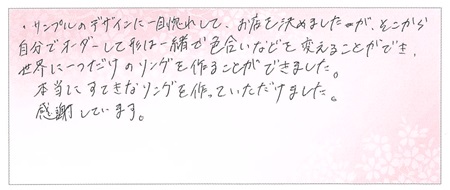 ・サンプルのデザインに一目惚れして、お店を決めましたが、そこから
自分でオーダーして形は一緒で色合いなどを変えることができ、
世界に一つだけのリングを作ることができました。
本当にすてきなリングを作っていただけました。
感謝しています。